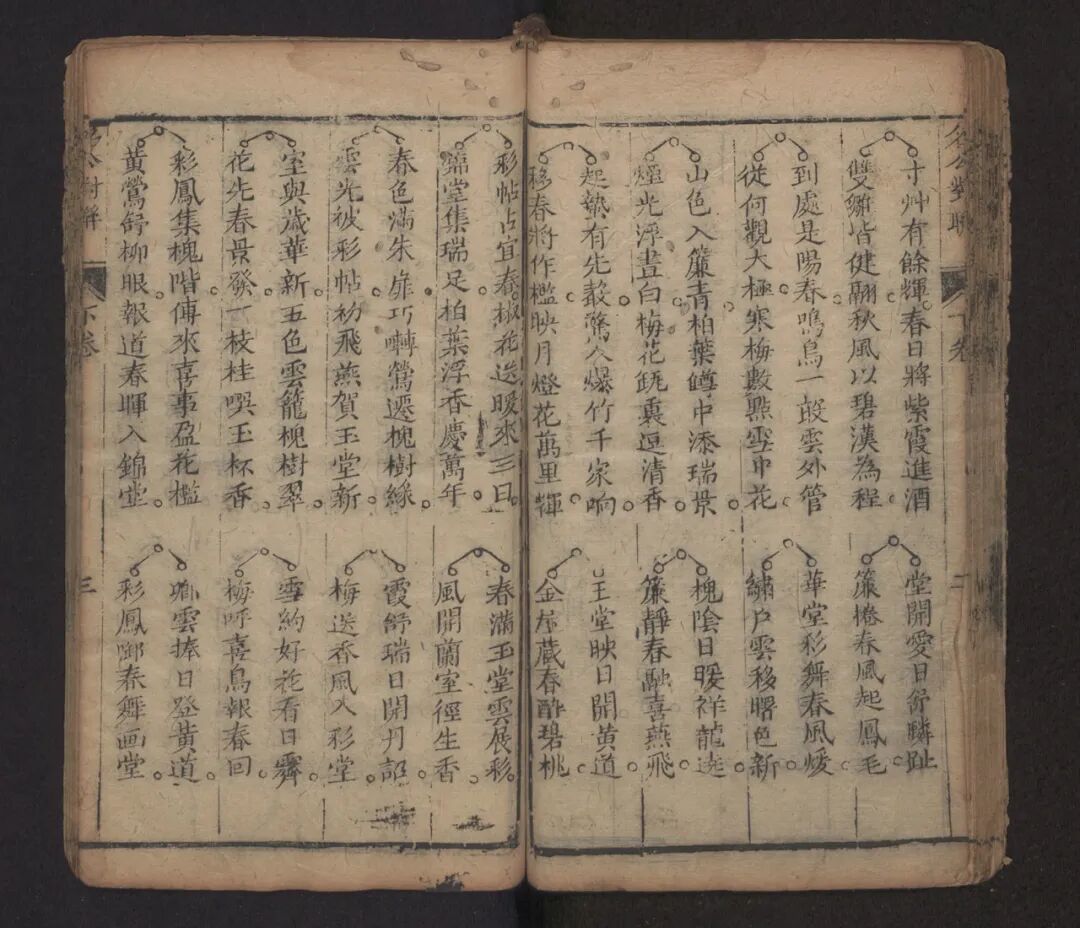 名公對聯 下卷 二
寸艸有餘輝春日將紫霞進酒
雙雛皆健翮秋風以碧漢為程
到處是陽春鳴鳥一敲雲外管
從何觀大極寒梅數點雪中花
山色入簾青柏葉罇中添瑞景
煙光浮晝白梅花甌裏逗清香
起蟄有先聲驚人爆竹千家响
移春將作檻映月燈花萬里輝
堂開愛日舒麟趾
簾捲春風起鳳毛
華堂彩舞春風煖
繡户雲移曙色新
槐陰日暖祥龍遶
簾靜春融喜燕飛
玉堂映日開黃道
金屋藏春醉碧桃
彩帖占宜春椒花送暖來三日
錦堂集瑞足柏葉浮香慶萬年
春色滿朱扉巧囀鶯遷槐樹緑
雲光被彩帖初飛燕賀玉堂新
室與歲華新五色雲籠槐樹翠
花先春景發一枝桂噀玉杯香
彩鳳集槐階傳來喜事盈花檻
黃鶯舒柳眼報道春暉入錦堂
春滿玉堂雲展彩
風開蘭室徑生香
霞舒瑞日開丹詔
梅送香風入彩堂
雪約好花看日霽
梅呼喜鳥報春回
卿雲捧日登黃道
彩鳳啣春舞画堂
名公對聯 下卷 三